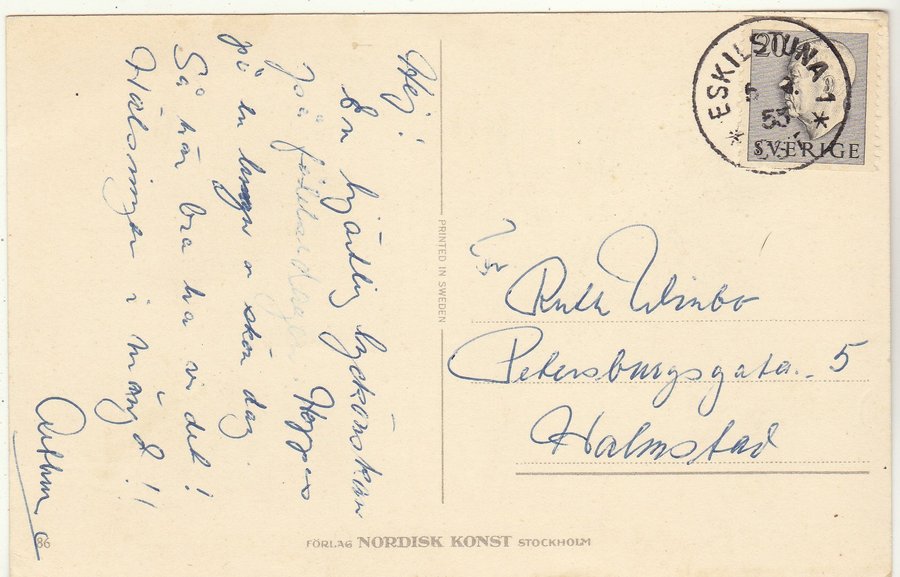 Hej!
En hjärtlig lyckönskan
på födelsedagen. Hoppas
på en lugn o skön dag.
Så här bra ha vi det!
Hälsningar i mängd!!
Arthur
86
PRINTED IN SWEDEN
FÖRLAG NORDISK KONST STOCKHOLM
20
SVERIGE
* ESKILSTUNA 1 *
53
Ruth Winbo
Petersburgsgata. 5
Halmstad